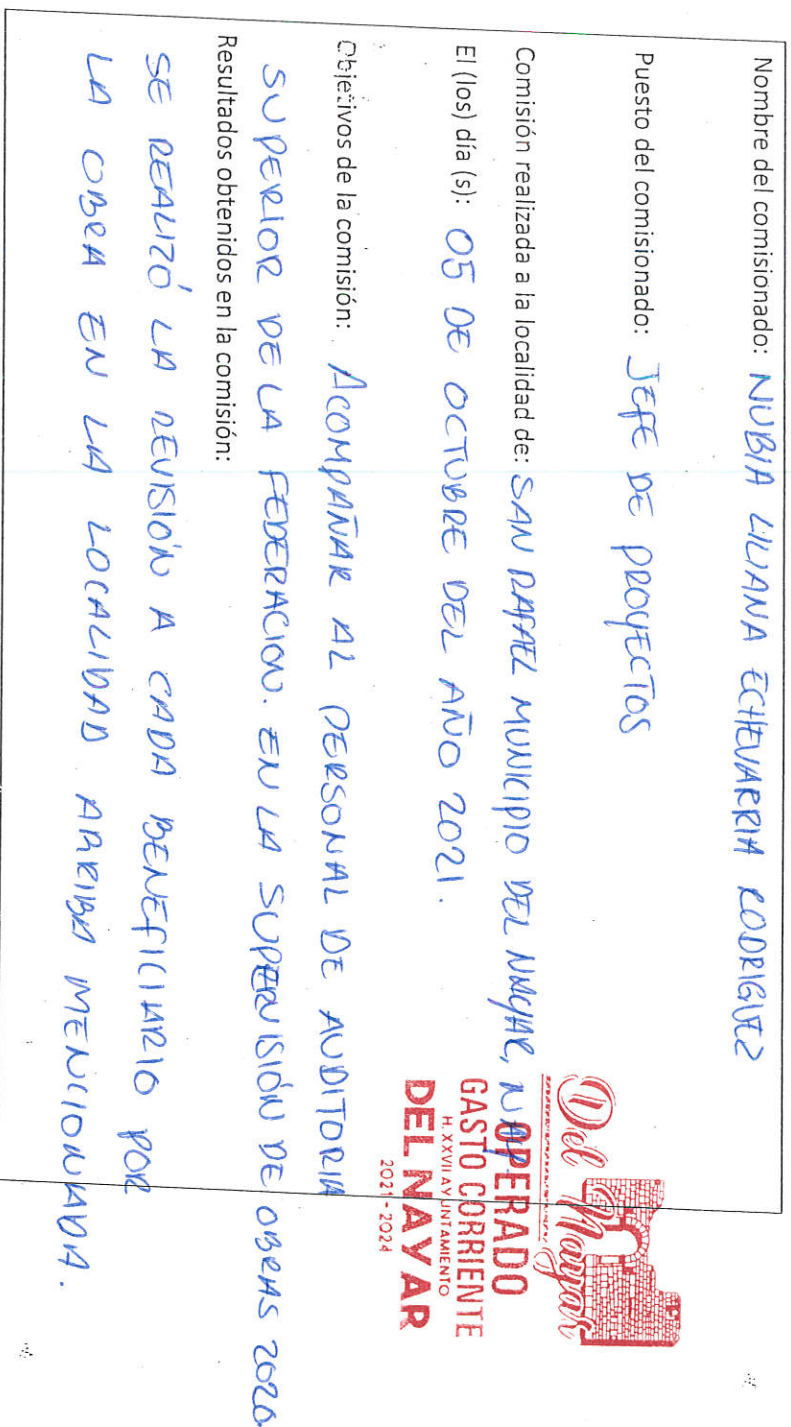 Nombre del comisionado: NUBIA LILIANA ECHEVARRIA RODRIGUEZ
Puesto del comisionado: JEFE DE PROYECTOS
Comisión realizada a la localidad de: SAN RAFAEL MUNICIPIO DEL NAYAR, NAY.
El (los) día (s): 05 DE OCTUBRE DEL AÑO 2021.
Objetivos de la comisión: ACOMPAÑAR AL PERSONAL DE AUDITORIA
SUPERIOR DE LA FEDERACION. EN LA SUPERVISIÓN DE OBRAS 2020
Resultados obtenidos en la comisión:
SE REALIZÓ LA REVISIÓN A CADA BENEFICIARIO POR
LA OBRA EN LA LOCALIDAD ARRIBA MENCIONADA.
Del Nayar
OPERADO
GASTO CORRIENTE
H. XXVII AYUNTAMIENTO
DEL NAYAR
2021 - 2024